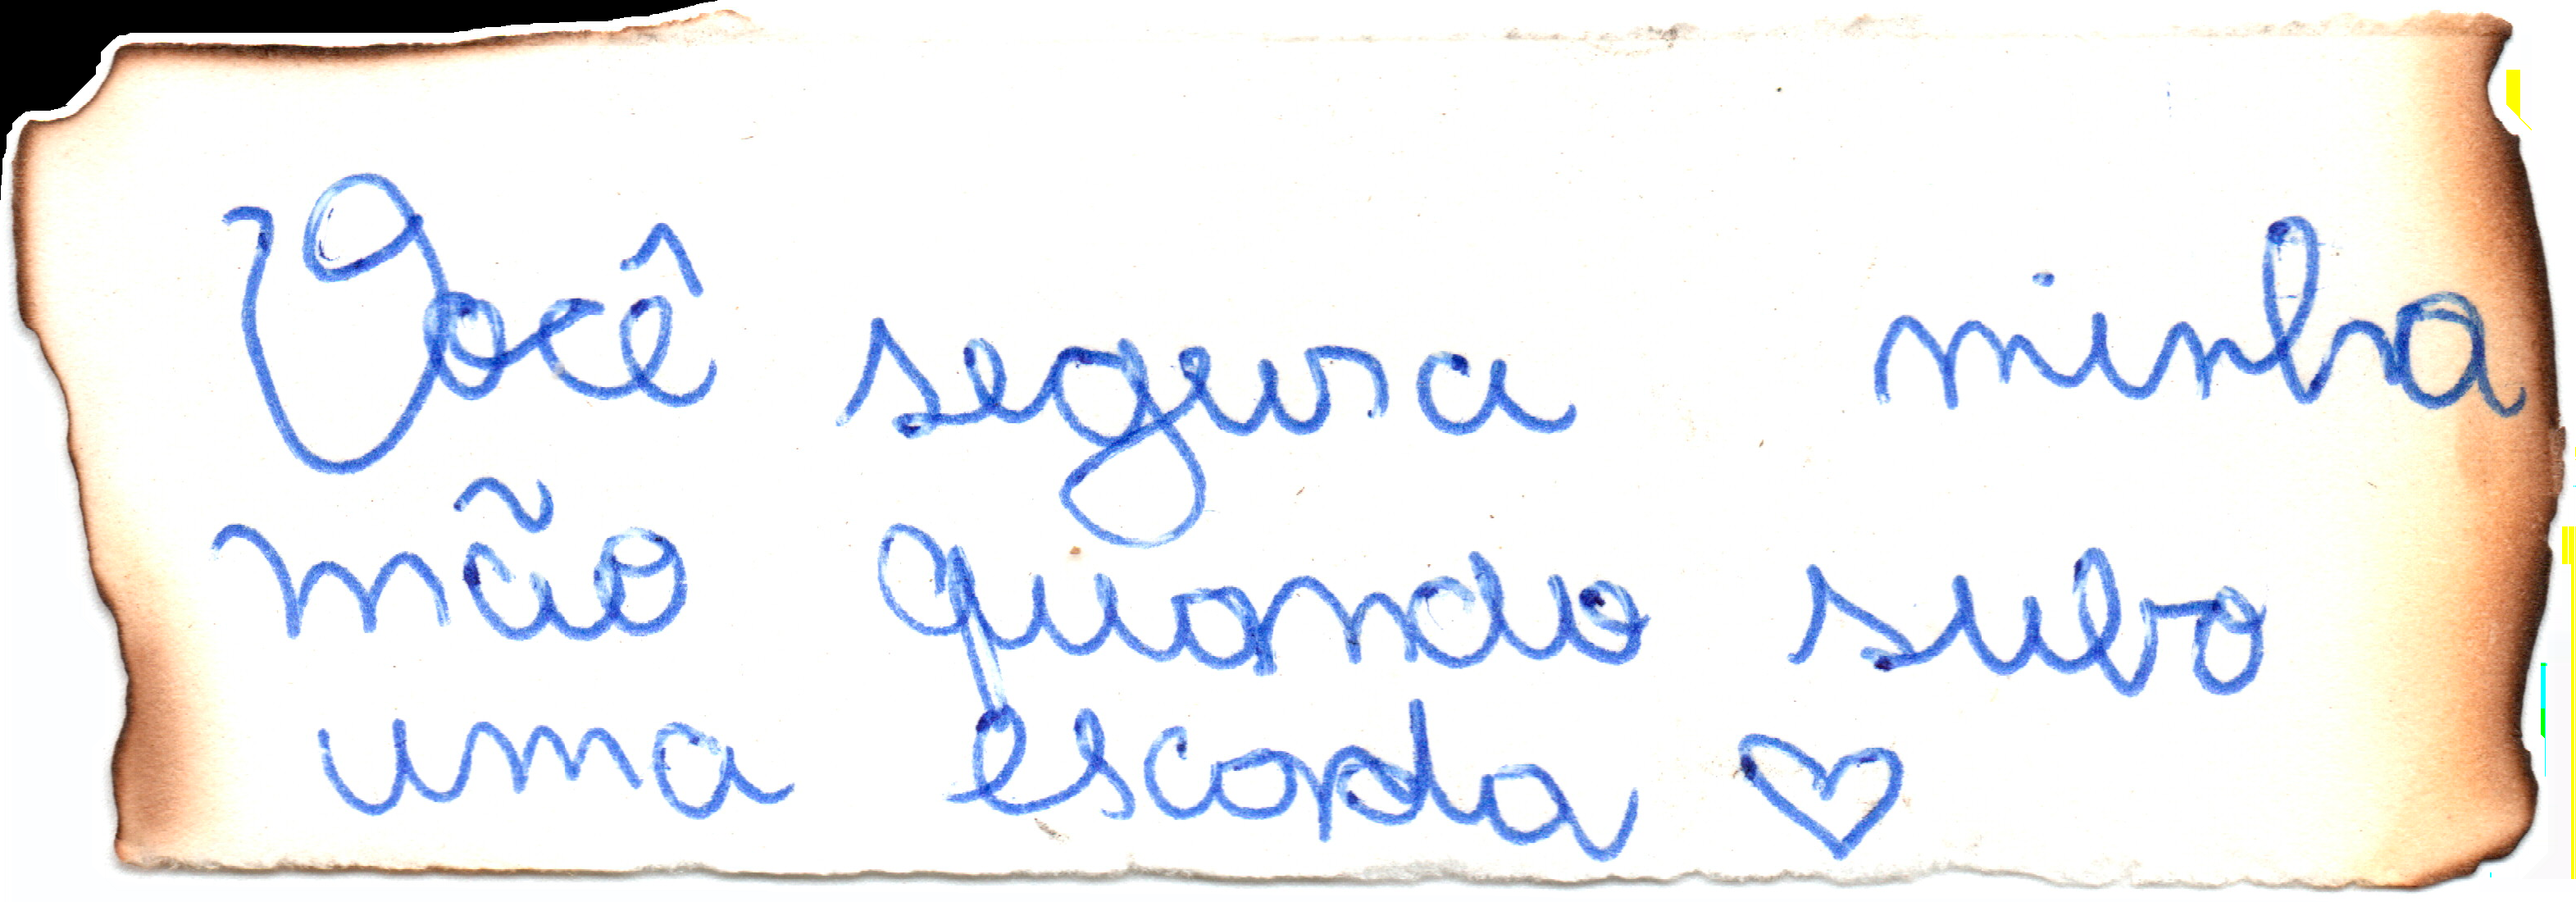 Você segura minha
mão quando subo
uma escada ♡